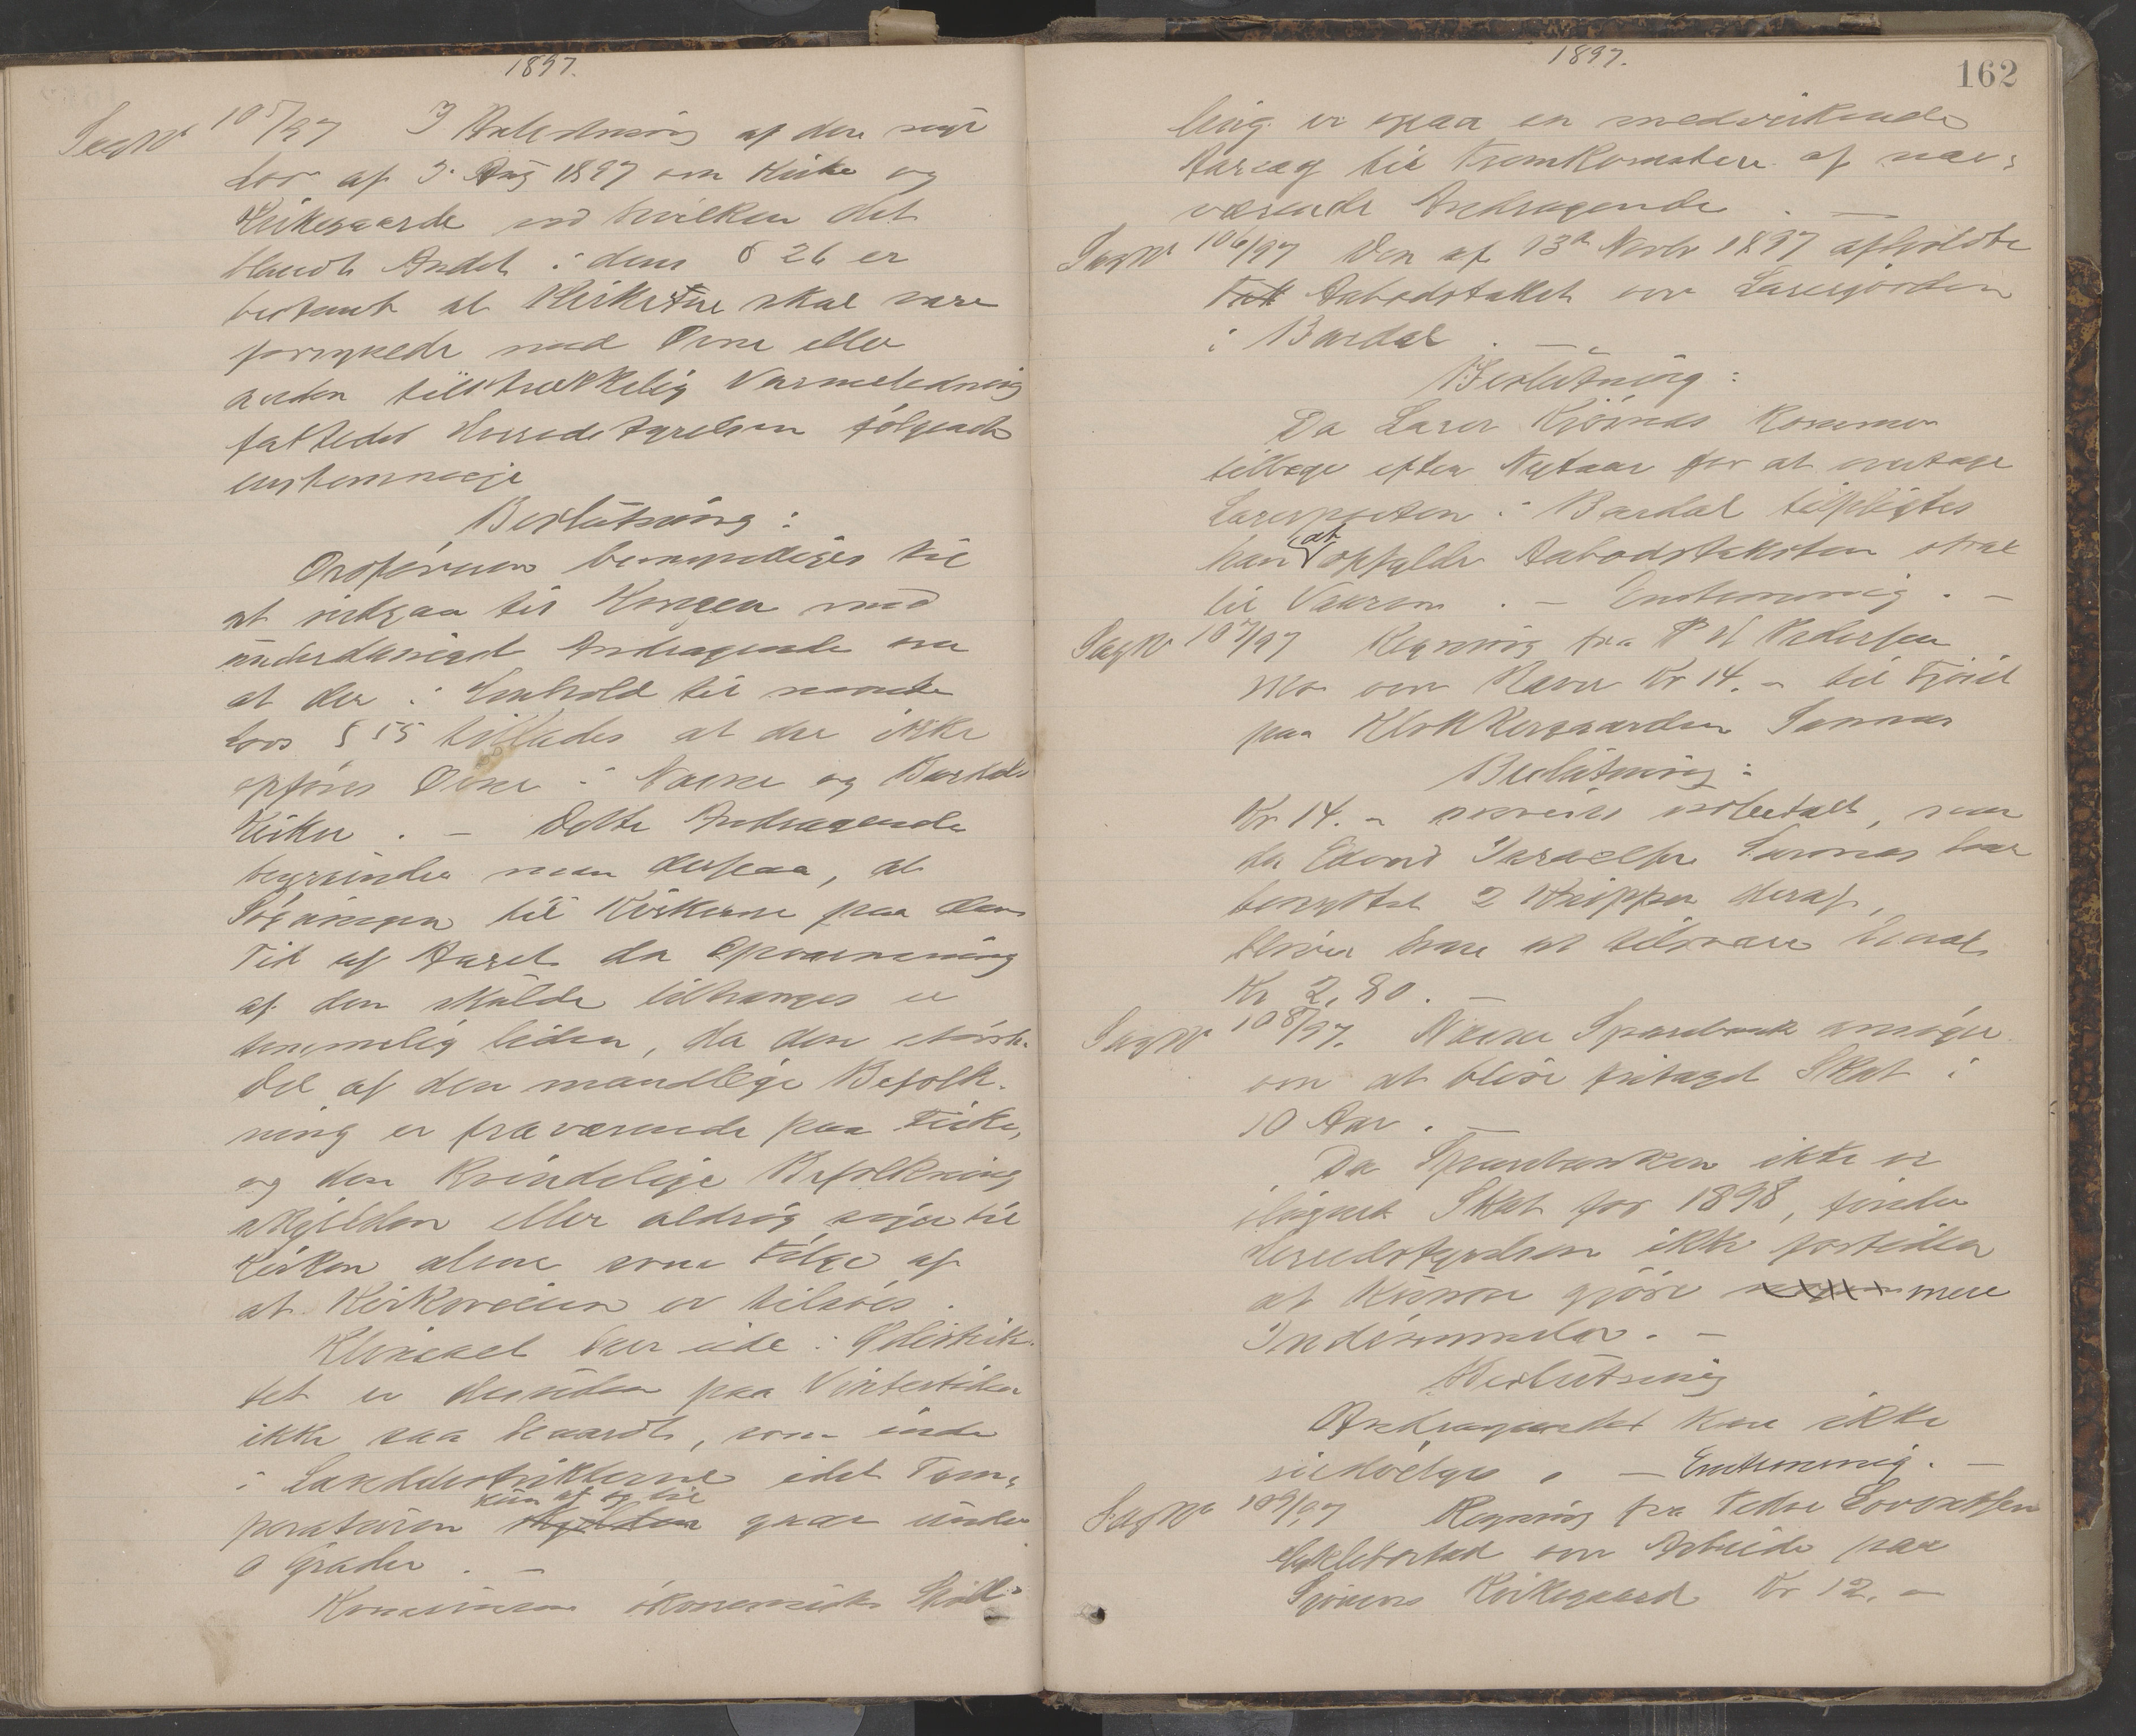 1897.
Sag No 105/97 I Anledning af den nye
Lov af 3. Aug 1897 om Kirke og
Kirkegaarde ved hvilken det
blandt Andet i dens § 26 er
bestemt at Kirkerne skal være
forsynede med Ovne eller
anden tilstrækkelig Varmeledning
fattedes Herredstyrelsen følgende
enstemmige
Beslutning:
Ordføreren bemyndiges til
at indgaa til Kongen med
underdanigst Andragende om
at der i Henhold til nævnte
Lovs § 55 tillades at der ikke
opføres Ovne i Næsne og Bardals
Kirker. - Dette Andragende
begrunder man derpaa, at
Søgningen til Kirkerne paa den
Tid af Aaret da Opvarmning
af den skulde tiltrænges er
temmelig liden, da den største
Del af den mandlige Befolk-
ning er fraværende paa Fiske,
og den kvindelige Befolkning
skjelden eller aldrig søger til
Kirken alene som Følge af
at Kirkeveien er tilsøs.
Klimaet her ude i Ødistrik-
tet er desuden paa Vintertiden
ikke saa haardt, som inde
i Landdistrikterne idet Tem-
kun af og til
peraturen skjelden gaar under
0 Grader. -
Kommunens økonomiske Stil-
1897.
162
ling er ogsaa en medvirkende
Aarsag til Fremkomsten af nær-
værende Andragende. -
Sag No 106/97 Den af 13de Novbr 1897 afholdte
Aabodstakst over Lærerjorden
i Bardal.
Beslutning:
Da Lærer Kjønnås kommer
tilbage efter Nytaar for at overtage
Lærerposten i Bardal tilpligtes
han at opfylde Aabodstaksten strax
til Vaaren. - Enstemmig. -
Sag No 107/97 Regning fra P M Pedersen
Mo om Næver Kr 14. - til Fjøset
paa Klokkergaarden Sannes
Beslutning:
Kr 14. - anvises udbetalt, men
da Edvard Israelsen Sannes har
benyttet 2 Knipper deraf,
bliver han at tilsvare heraf
Kr 2,80. -
Sag No 108/97. Næsne Sparebank ansøger
om at blive fritaget Skat i
10 Aar. -
Da Sparebanken ikke er
ilignet Skat for 1898, finder
Herredstyrelsen ikke fortiden
at kunne gjøre mere
Indrømmelse. -
Beslutning
Andragendet kan ikke
imødekommes. - Enstemmig. -
Sag No 109/97 Regning fra Peder Lorentsen
om Arbeide paa
Kirkegaard Kr 12. -